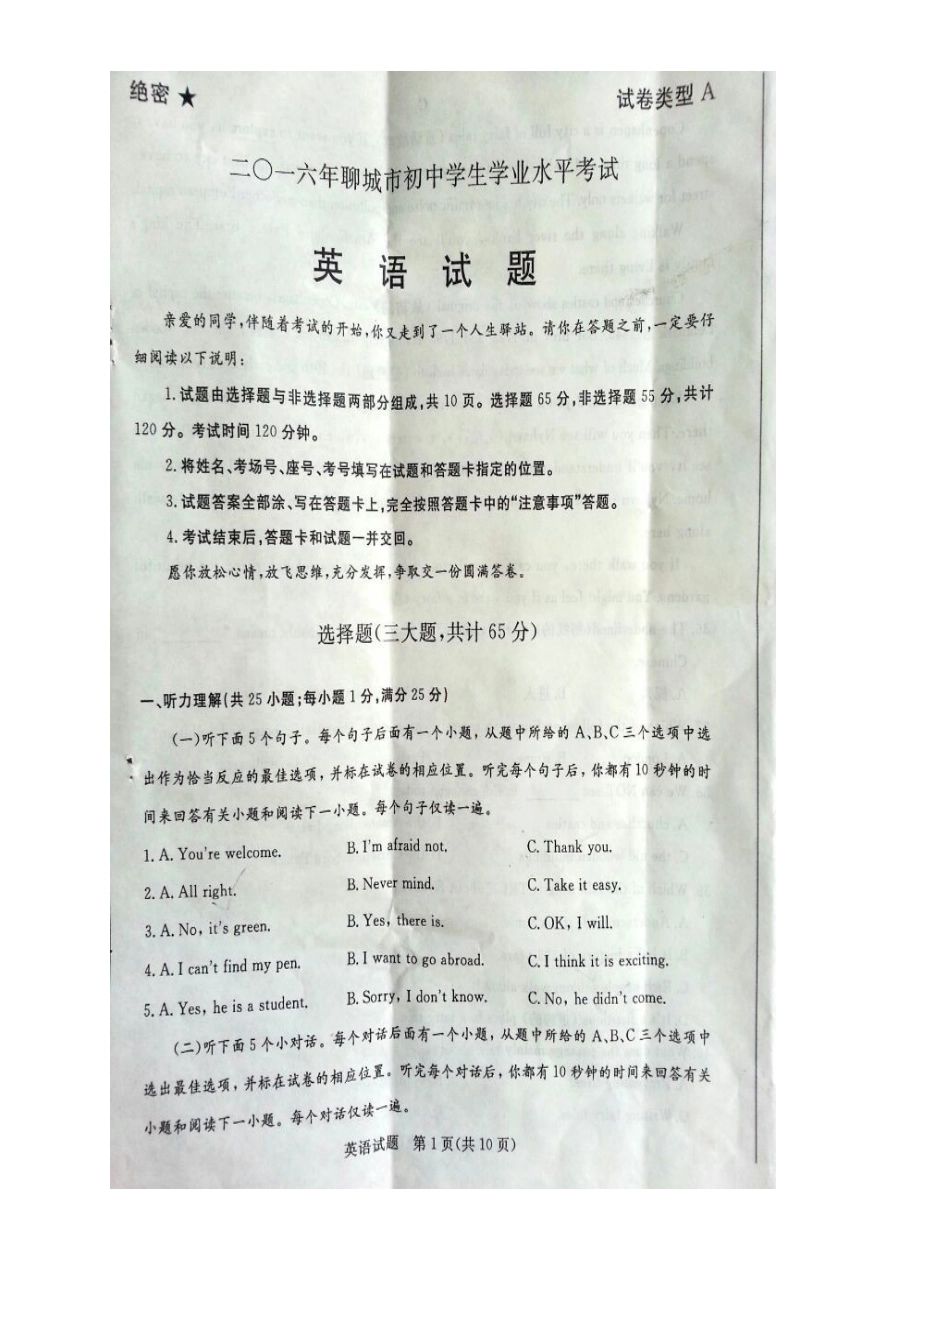 绝密★
试卷类型 A
二〇一六年聊城市初中学生学业水平考试
英 语 试 题
亲爱的同学,伴随着考试的开始,你又走到了一个人生驿站。请你在答题之前,一定要仔
细阅读以下说明:
1.试题由选择题与非选择题两部分组成,共 10 页。选择题 65 分,非选择题 55 分,共计
120 分。考试时间 120 分钟。
2.将姓名、考场号、座号、考号填写在试题和答题卡指定的位置。
3.试题答案全部涂、写在答题卡上,完全按照答题卡中的“注意事项”答题。
4.考试结束后,答题卡和试题一并交回。
愿你放松心情,放飞思维,充分发挥,争取交一份圆满答卷。
选择题(三大题,共计 65 分)
一、听力理解(共 25 小题;每小题 1 分,满分 25 分)
(一)听下面 5 个句子。每个句子后面有一个小题,从题中所给的 A、B、C 三个选项中选
出作为恰当反应的最佳选项,并标在试卷的相应位置。听完每个句子后,你都有 10 秒钟的时
间来回答有关小题和阅读下一小题。每个句子仅读一遍。
1. A. You're welcome. B. I'm afraid not. C. Thank you.
2. A. All right. B. Never mind. C. Take it easy.
3. A. No, it's green. B. Yes, there is. C. OK, I will.
4. A. I can't find my pen. B. I want to go abroad. C. I think it is exciting.
5. A. Yes, he is a student. B. Sorry, I don't know. C. No, he didn't come.
(二)听下面 5 个小对话。每个对话后面有一个小题,从题中所给的 A、B、C 三个选项中
选出最佳选项,并标在试卷的相应位置。听完每个对话后,你都有 10 秒钟的时间来回答有关
小题和阅读下一小题。每个对话仅读一遍。
英语试题 第 1 页(共 10 页)